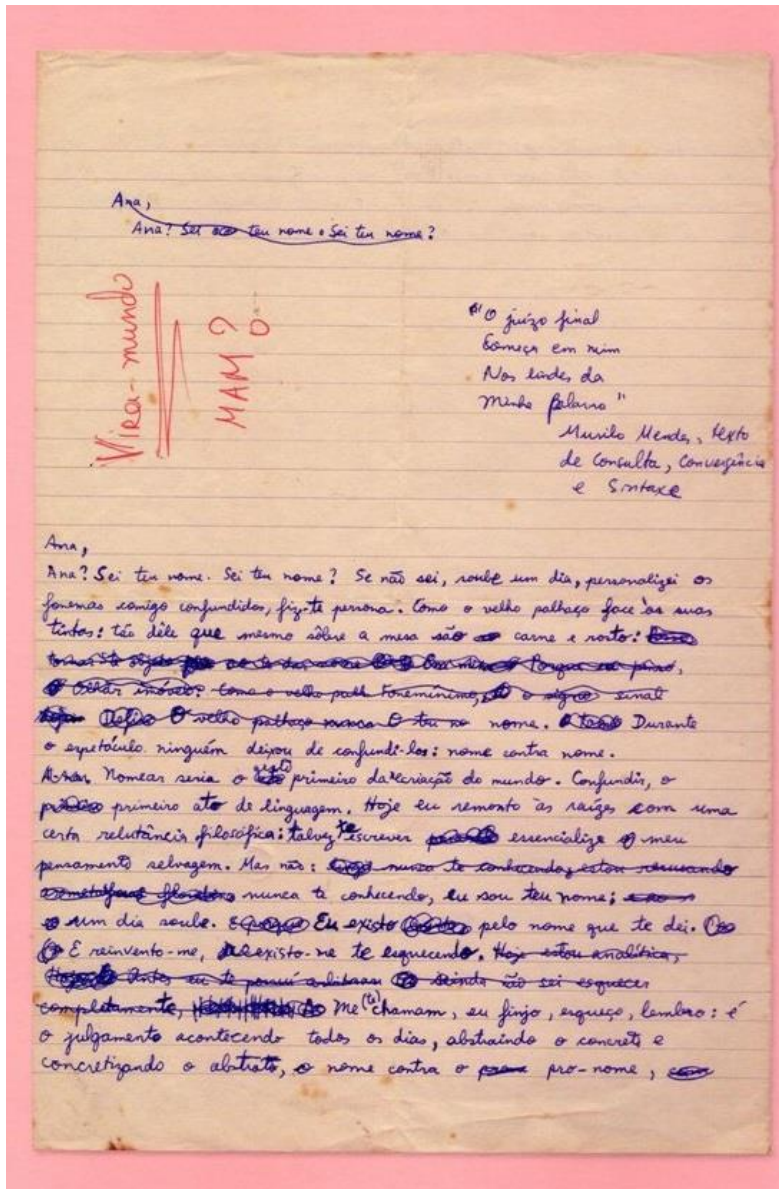 Ana,
Ana? Sei teu nome. Sei teu nome?
Vira-mundo
MAM?
"O juízo final
Começa em mim
Nos lindes da
Minha palavra"
Murilo Mendes, texto
de Consulta, Convergência
e Sintaxe
Ana,
Ana? Sei teu nome. Sei teu nome? Se não sei, soube um dia, personalizei os
fonemas comigo confundidos, fiz-te persona. Como o velho palhaço face às suas
tintas: tão dêle que mesmo sôbre a mesa são carne e rosto:
olhar imóvel: Como o velho palh o signo sinal
O velho palhaço nunca nome. Durante
o espetáculo ninguém deixou de confundi-los: nome contra nome.
Nomear seria o gesto primeiro da criação do mundo. Confundir, o
primeiro ato de linguagem. Hoje eu remonto às raízes com uma
certa relutância filosófica: talvez te escrever essencialize meu
pensamento selvagem. Mas não: nunca te conhecendo, estou recusando
nunca te conhecendo, eu sou teu nome;
um dia soube. Eu existo pelo nome que te dei.
E reinvento-me, existo-me te esquecendo. Hoje estou analítica,
Antes eu te ainda não sei esquecer
completamente, Me (te) chamam, eu finjo, esqueço, lembro: é
o julgamento acontecendo todos os dias, abstraindo o concreto e
concretizando o abstrato, o nome contra o pro-nome,